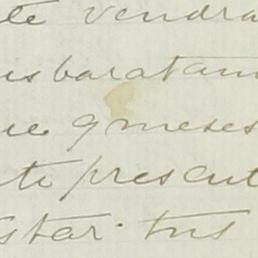 te vendra
us baratam
ue 9 meses
te present
star. tus